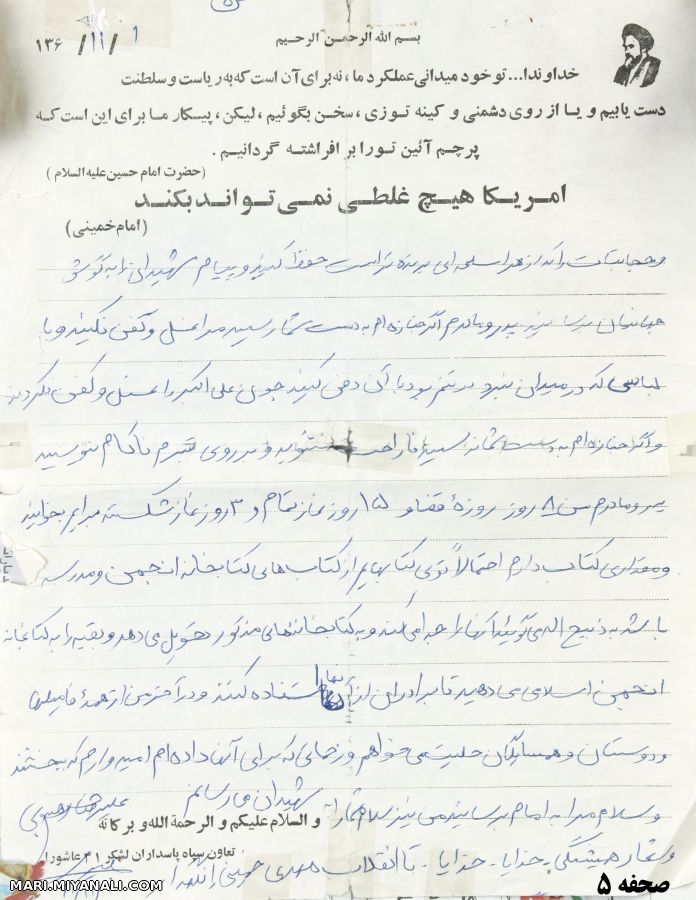 بسم الله الرحمن الرحیم
۱۳۶ / ۱۱ / ۱
خداوندا... تو خود میدانی عملکرد ما، نه برای آن است که به ریاست و سلطنت
دست یابیم و یا از روی دشمنی و کینه توزی، سخن بگوئیم، لیکن، پیکار ما برای این است که
پرچم آئین تو را بر افراشته گردانیم.
(حضرت امام حسین علیه السلام)
امریکا هیچ غلطی نمی تواند بکند
(امام خمینی)
و حجابتان را که از هر اسلحه ای برنده تر است حفظ کنید و پیام شهیدان را به گوش
جهانیان برسانید پدر و مادرم اگر جنازه ام به دست شما رسید مرا غسل و کفن نکنید و با
لباسی که در میدان نبرد بر تنم بود با آن دفن کنید چون علی اکبر را غسل و کفن نکردند
و اگر جنازه ام به دست شما نرسید ناراحت نشوید و بر روی قبرم ناکام ننویسید
پدر و مادرم من ۸ روز روزهٔ قضا و ۱۵ روز نماز تمام و ۳ روز نماز شکسته برایم بخوانید
و مقداری کتاب دارم احتمالاً توی کتابهایم از کتاب های کتابخانه انجمن و مدرسه
باشد به ذبیح اله می گوئید آنها را جدا می کند و به کتابخانه های مذکور تحویل می دهد و بقیه را به کتابخانه
انجمن اسلامی می دهید تا برادران از آنها استفاده کنند و در آخر من از همهٔ فامیلها
و دوستان و همسایگان حلیت می خواهم و زحماتی که برای آنها داده ام امیدوارم که ببخشند
و سلام مرا به امام برسانید من نیز سلام شما را به شهیدان می رسانم
و السلام علیکم و الرحمة الله و برکاته
و شعار همیشگی خدایا - خدایا - تا انقلاب مهدی خمینی را نگهدار
تعاون سپاه پاسداران لشگر ۳۱ عاشورا
MARI.MIYANALI.COM
صحفه ۵